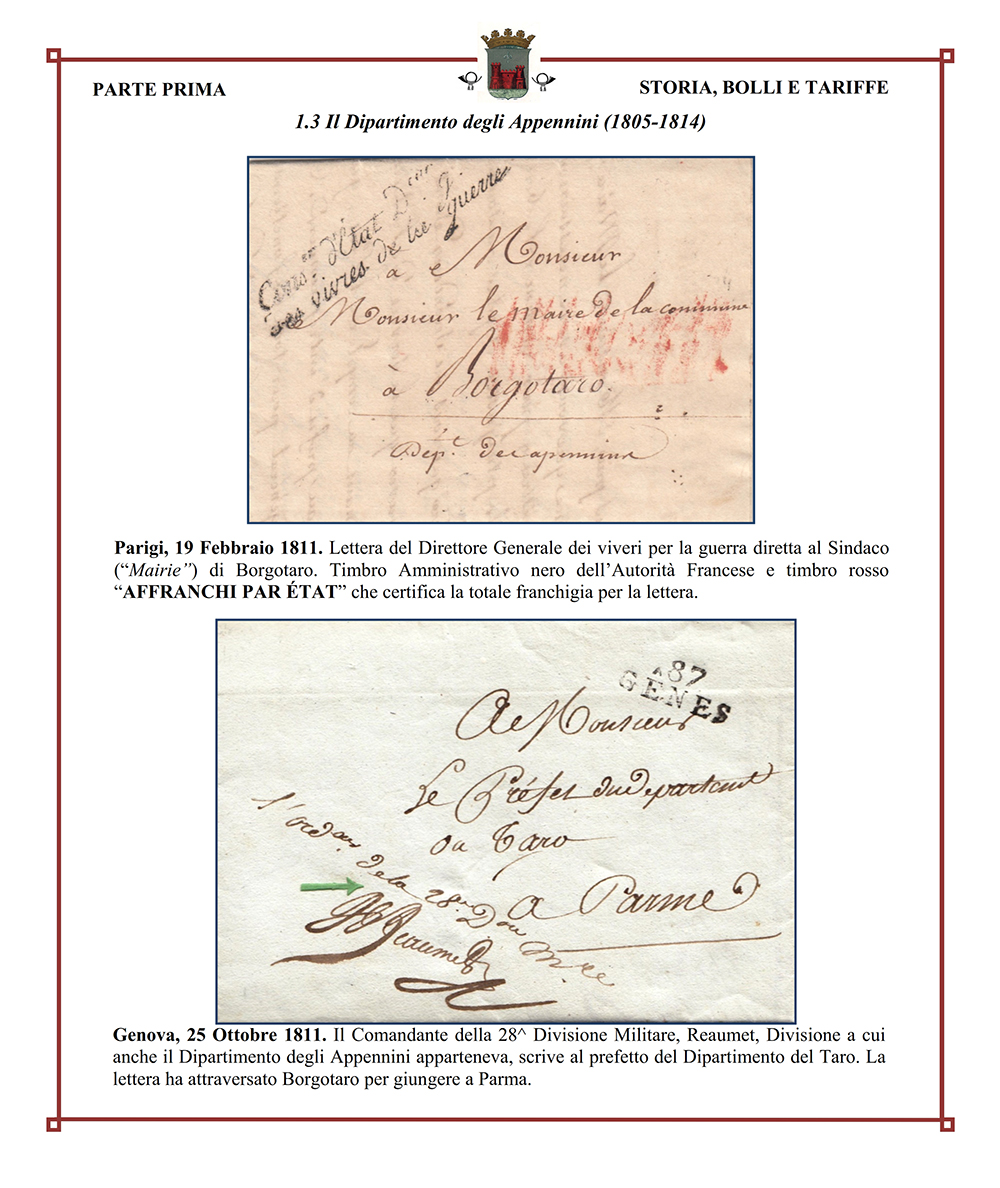 PARTE PRIMA
STORIA, BOLLI E TARIFFE
1.3 Il Dipartimento degli Appennini (1805-1814)
Cons.er d'État D.eur
des vivres de la guerre
à Monsieur
Monsieur le maire de la commune
à Borgotaro.
Dép.t des apennins
Parigi, 19 Febbraio 1811. Lettera del Direttore Generale dei viveri per la guerra diretta al Sindaco
(“Mairie”) di Borgotaro. Timbro Amministrativo nero dell’Autorità Francese e timbro rosso
“AFFRANCHI PAR ÉTAT” che certifica la totale franchigia per la lettera.
87
GÊNES
A Monsieur
Le Préfet du Departemt
du Taro
a Parme
l'ordon.
de la 28.e D.on M.re
Genova, 25 Ottobre 1811. Il Comandante della 28^ Divisione Militare, Reaumet, Divisione a cui
anche il Dipartimento degli Appennini apparteneva, scrive al prefetto del Dipartimento del Taro. La
lettera ha attraversato Borgotaro per giungere a Parma.